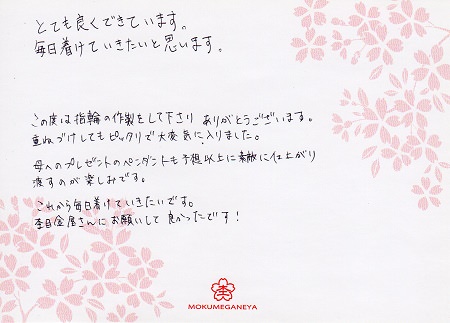 とても良くできています。
毎日着けていきたいと思います。
この度は指輪の作製をして下さり ありがとうございます。
重ねづけしてもピッタリで大変気に入りました。
母へのプレゼントのペンダントも予想以上に素敵に仕上がり
渡すのが楽しみです。
これから毎日着けていきたいです。
杢目金屋さんにお願いして良かったです！
MOKUMEGANEYA